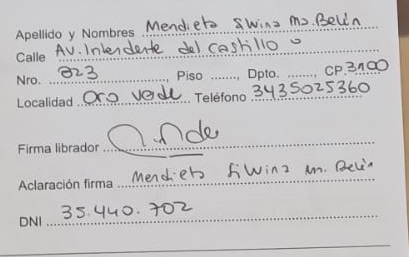 Apellido y Nombres Mendieta Siwina Ma. Belén
Calle AV. Intendente del castillo
Nro. 823, Piso ......, Dpto. ......, CP. 3100
Localidad Oro verde Teléfono 3435025360
Firma librador
Aclaración firma Mendieta Siwina M. Belén
DNI 35.440.702